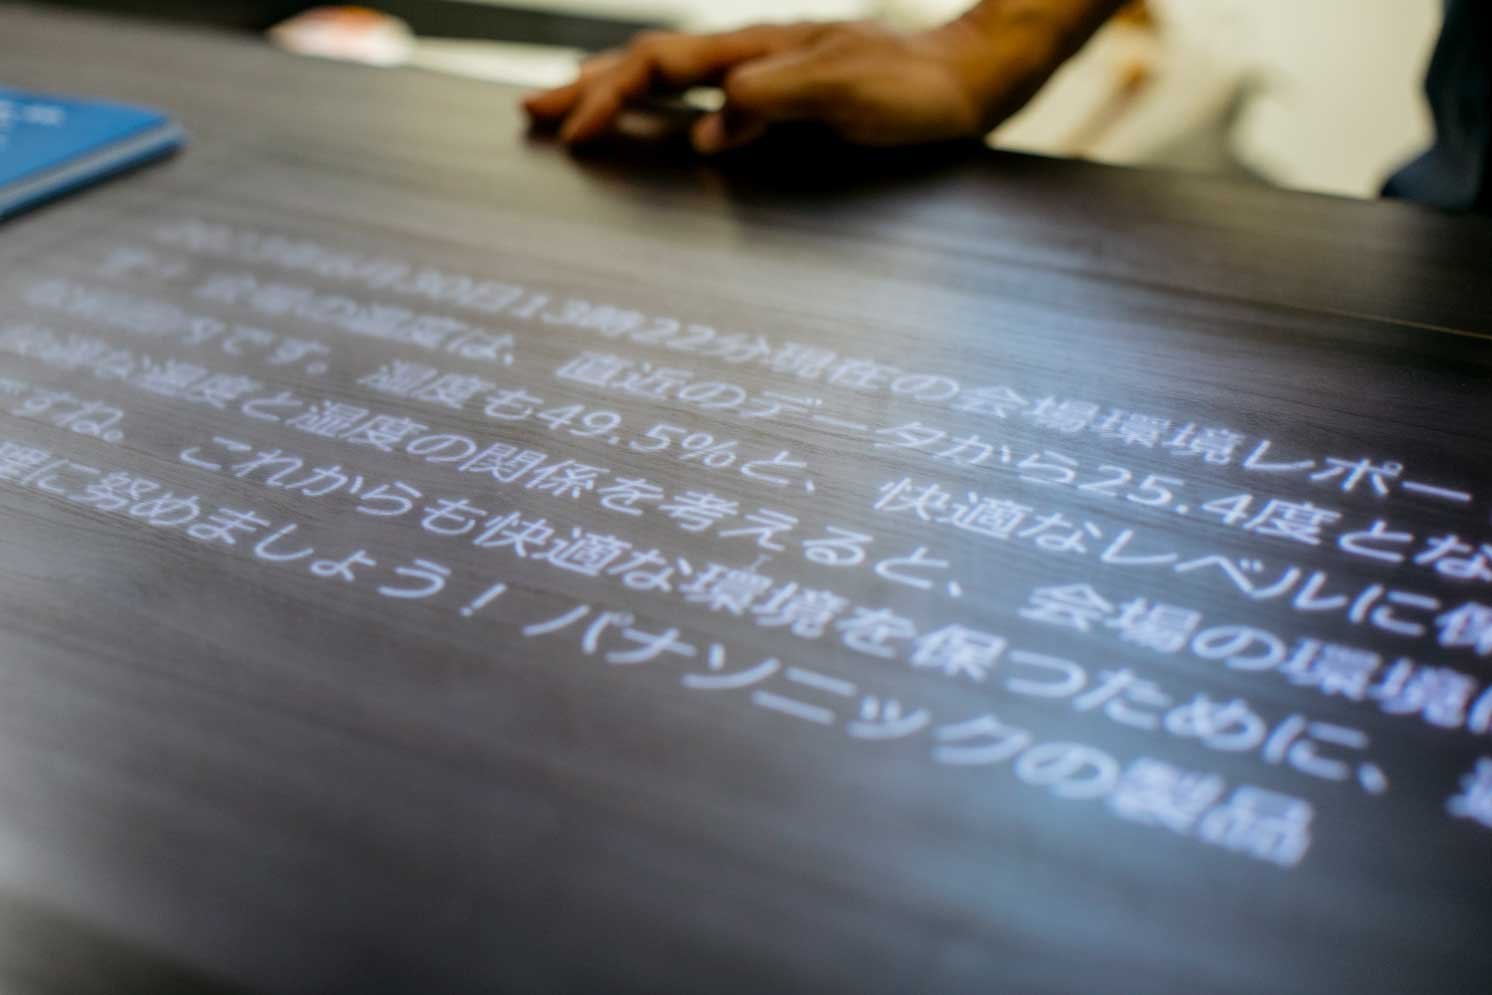 月30日13時22分現在の会場環境レポー
す。会場の温度は、直近のデータから25.4度とな
です。湿度も49.5%と、快適なレベルに保
な温度と湿度の関係を考えると、会場の環境
ですね。これからも快適な環境を保つために、
理に努めましょう!パナソニックの製品